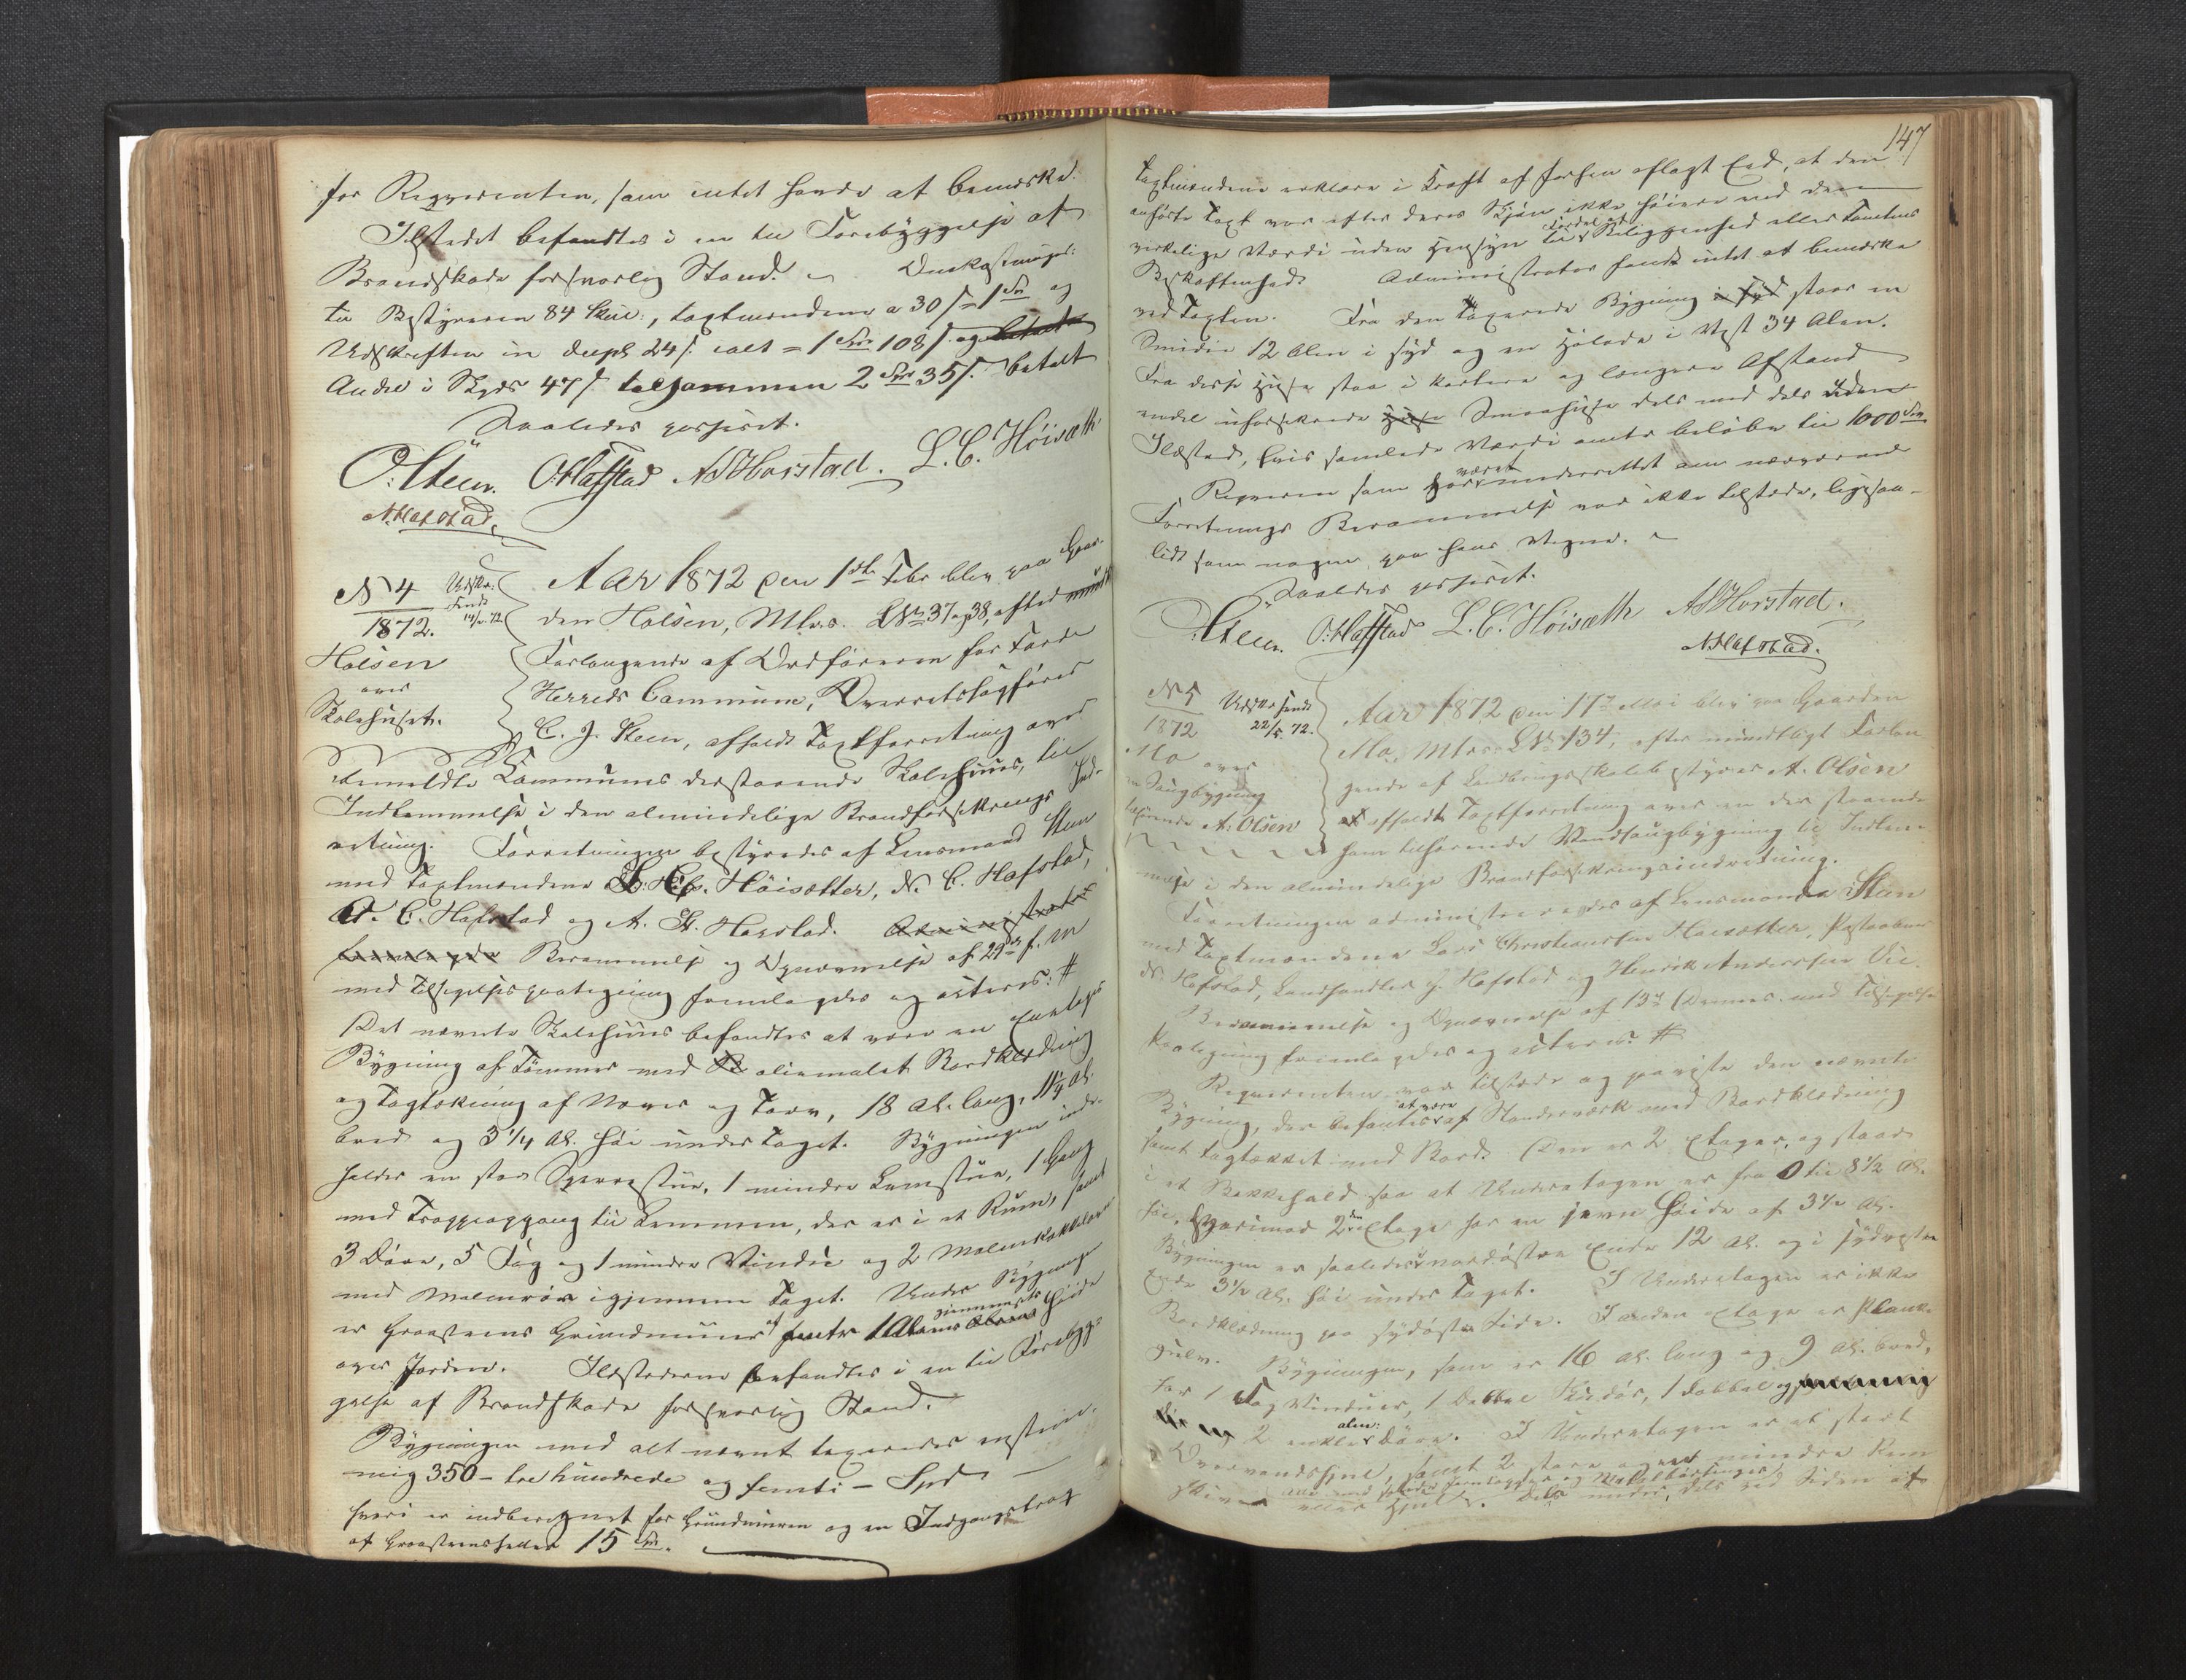 for Reqvirenten, som intet havde at bemærke.
Ildstedet befandtes i en til Forebyggelse af
Brandskade forsvarlig Stand. Omkostninger:
til Bestyreren 84 Skil., taxtmændene a 30 s = 1 Spd og
Udskriften in dupl 24 s. ialt = 1 Spd 108 s. og betalt
Andel i Skyds 47 s tilsammen 2 Spd 35 s. betalt
Saaledes passeret.
O. Steen. O. Hafstad A S Horstad. L. C. Höisæth
N. Hafstad.
N 4 Udskr.
sendt
1872. 14/2 72
Holsen
over
Skolehuset.
Aar 1872 den 1ste Febr blev paa Gaar-
den Holsen, Mtr. LNr 37 og 38, efter
Forlangende af Ordföreren for Förde
Herreds Commune, Overretssagförer
C. J. Steen, afholdt Taxtforretning over
bemeldte Kommunes derstaaende Skolehuus, til
Indlemmelse i den almindelige Brandforsikrings Ind-
retning. Forretningen bestyredes af Lensmand Steen
med Taxtmændene L. C. Höisætter, N. C. Hafstad,
O. C. Hafstad og A. S. Horstad. Administrator
fremlagde Berammelse og Opnævnelse af 29de f. M
med Tilsigelsespaategning fremlagdes og acteres: #
Det nævnte Skolehuus befandtes at være en Etages
Bygning af Tömmer med oliemalet Bordklædning
og Tagtækning af Næver og Torv, 18 Al. lang, 11 1/4 Al.
bred og 3 1/4 Al. höi under Taget. Bygningen inde-
holder en stor Sperrestue, 1 mindre Lemstue, 1 Gang
med Trappeopgang til Lemmen, der er i et Rum, samt
3 Döre, 5 Fag og 1 mindre Vindue og 2 Malmkakkelovne
med Malmrör igjennem Taget. Under Bygningen
er Graasteens Grundmuur af 1 Alens gjennemsnits Höide
over Jorden. Ildstederne befandtes i en til Forebyg-
gelse af Brandskade forsvarlig Stand.
Bygningen med alt nævnt taxeredes enstem-
mig 350 – tre hundrede og femti – Spd
hvori er indberegnet for Grundmuren og en Indgangstrap
af Graasteensheller 15 Spd.
147
Taxtmændene erklære i Kraft af forhen aflagt Eed, at den
anförte Taxt var efter deres Skjön ikke höiere end den
virkelige Værdi uden Hensyn til Fordel ved Beliggenhed eller Tomtens
Beskaffenhed. Administrator fandt intet at bemærke
ved Taxten. Fra den taxerede Bygning i Syd staar en
Smidie 12 Alen i Syd og en Hölade i Vest 34 Alen.
Fra disse Huse staa i kortere og længere Afstand
endel uforsikrede Huse Smaahuse dels med dels uden
Ildsted, hvis samlede Værdi antas belöbe til 1000 Spd
Reqvirenten som har været underrettet om nærværende
Forretnings Berammelse var ikke tilstede, ligesaa-
lidt som nogen paa hans Vegne.
Saaledes passeret.
Steen. O. Hafstad L. C. Höisæth A S Horstad.
N. Hafstad.
N 5 Udskr sendt
1872 22/5 72.
Mo over
en Saugbygning
tilhörende A. Olsen
Aar 1872 den 17de Mai blev paa Gaarden
Mo, Mtr. LNr 134, efter mundtligt Forlan-
gende af Landbrugsskolebestyrer A. Olsen
afholdt Taxtforretning over en der staaende
ham tilhörende Vandsaugbygning til Indlem-
melse i den almindelige Brandforsikringsindretning.
Forretningen administreredes af Lensmand Steen
med Taxtmændene Lars Christiansen Höisætter, Postaabner
N. Hafstad, Landhandler J. Hafstad og Henrik Andersen Vie.
Berammelse og Opnævnelse af 13de Dennes med Tilsigelses
Paategning fremlagdes og acteres: #
Reqvirenten var tilstede og paaviste den nævnte
Bygning, der befantes at være af Standerværk med Bordklædning
samt tagtækket med Bord. Den er 2 Etager, og staar
i et Bakkehald saa at Underetagen er fra 0 til 8 1/2 Al.
höi, hvorimod 2den Etage har en jevn Höide af 3 1/2 Al.
Bygningen er saaledes i nordöstre Ende 12 Al. og i sydvestre
Ende 3 1/2 Al. höi under Taget. I Underetagen er ikke
Bordklædning paa sydöstre Side. I anden Etage er Planke-
gulv. Bygningen, som er 16 Al. lang og 9 Al. bred,
har 1 Fag Vinduer, 1 Dobbel dör, 1 dobbel
2 enkle alm: Döre. I Underetagen er et stort
Overvandshjul, samt 2 store og mindre Rem
skiver eller Hjul. Dels under, dels ved Siden af